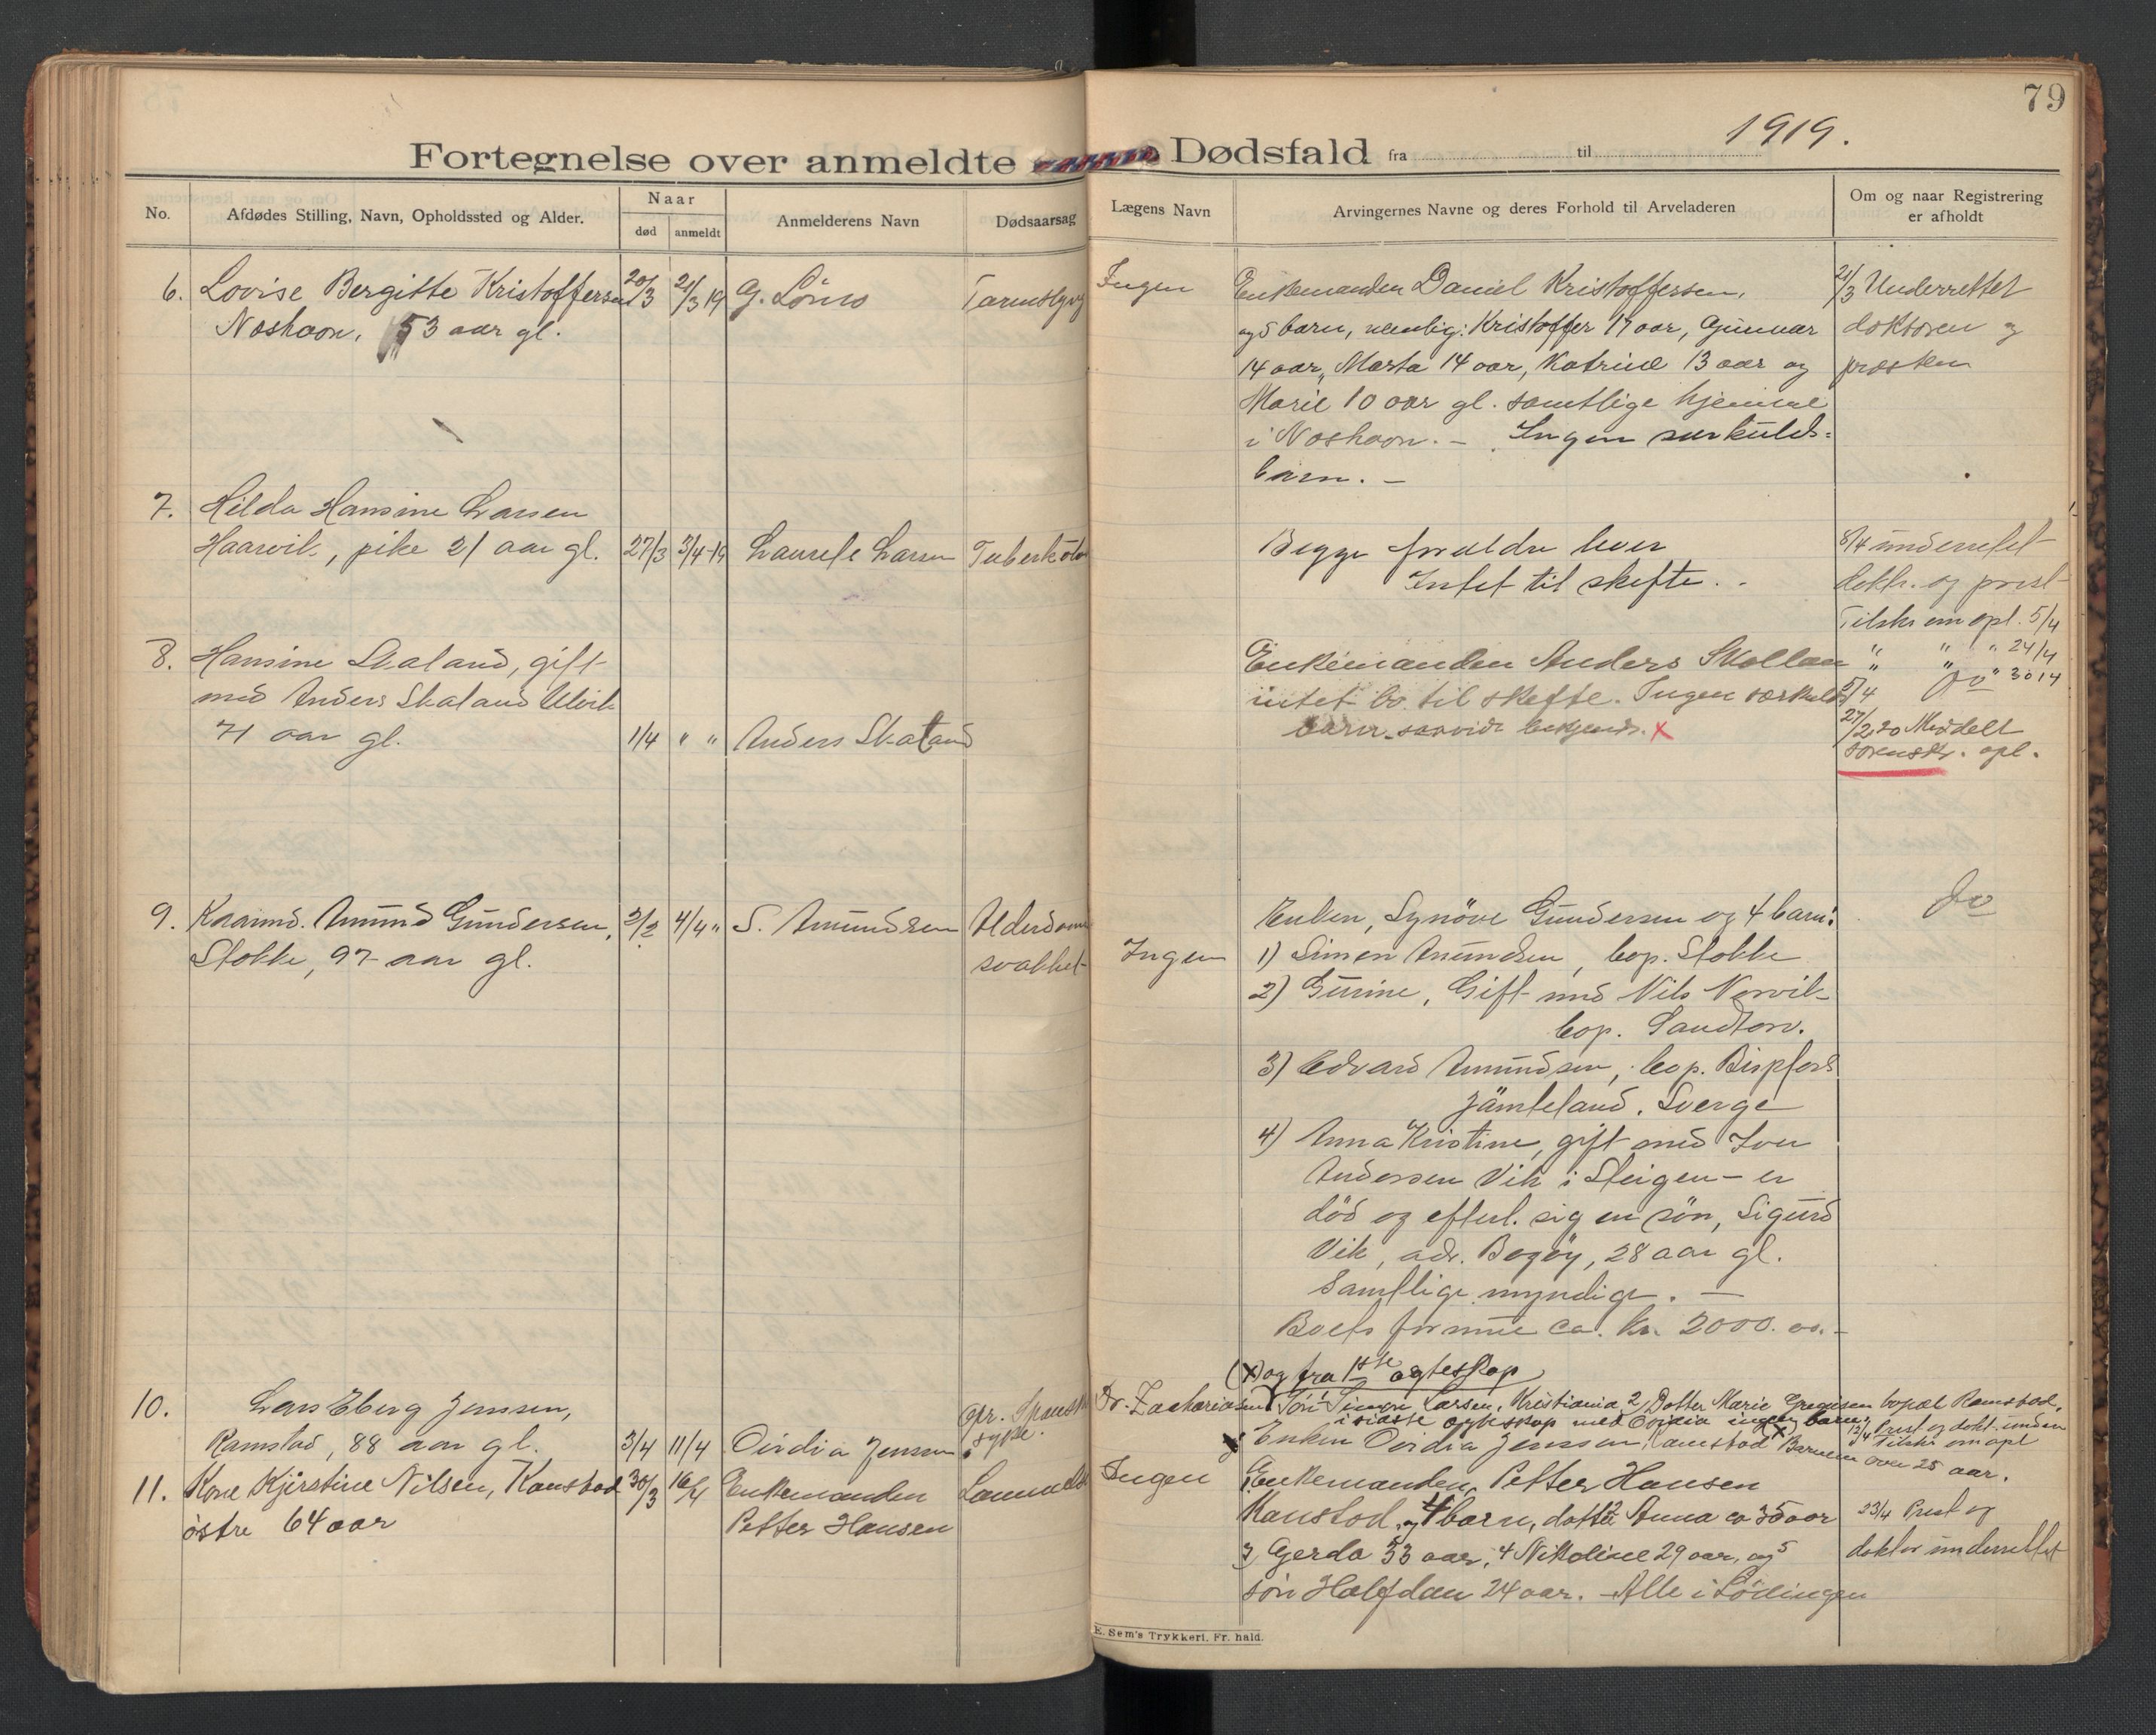 79
1919.
Fortegnelse over anmeldte Dødsfald fra til
No.
Afdødes Stilling, Navn, Opholdssted og Alder.
Naar
død
anmeldt
Anmelderens Navn
Dødsaarsag
Lægens Navn
Arvingernes Navne og deres Forhold til Arveladeren
Om og naar Registrering
er afholdt
6. Lovise Bergitte Kristoffersen 20/3 21/3 19 G. Löms
Noshaon, 53 aar gl.
Ingen
Enkemanden Daniel Kristoffersen,
og 5 barn, nemlig: Kristoffer 17 aar, Gunnar
14 aar, Marta 14 aar, Katrine 13 aar og
Marie 10 aar gl. samtlige hjemme
i Noshaon. - Ingen særkulds-
barn. -
21/3 Underrettet
doktoren og
presten
7. Hilda Hansine Larsen
Haarvik, pike 21 aar gl. 27/3 3/4-19 Laurets Larsen Tuberkulo
Begge foreldre lever
Intet til skifte. -
8/4 underrettet
doktr. og prest
8. Hansine Skaland, gift
med Anders Skaland Ulvik
71 aar gl. 1/4 " " Anders Skaland
Enkemanden Anders Skollan
intet bo til skefte. Ingen særkulds
barn saavidt bekjendt. x
Tilskr om opl. 5/4
" " " 24/4
" " " 30/4
5/4
27/2 20 Meddelt
sorenskr. opl.
9. Kaarmd. Amund Gundersen, 2/2 4/4 " S. Amundsen Alderdoms
Stokke, 97 aar gl. svakhet
Ingen
Enken, Synöve Gundersen og 4 barn:
1) Simon Amundsen, bop. Stokke
2) Gurine, Gift med Nils Norvik
bop. Sandtorv.
3) Edvard Amundsen, bop. Bispfors
Jämteland. Sverge
4) Anna Kristine, gift med Iver
Andersen Vik i Steigen - er
död og efterl. sig en sön, Sigurd
Vik, adr. Bogöy, 28 aar gl.
Samtlige myndige. -
Boets formue ca. kr. 2000.00. -
10. Lars Eberg Jensen,
Ramstad, 88 aar gl. 3/4 11/4 Ovidia Jensen
opr. Spansk
syke.
Dr. Zachariasen
(x) og fra 1ste egteskap
1 Søn Simon Larsen, Kristiania 2, Datter Marie Gregusen bopæl Ramstad,
i sidste egteskap med Ovidia ingen barn,
Enken Ovidia Jenssen, Ramstad (x) Barnen over 25 aar.
12/4 Prest og dokt. underr
Tilskr om opl
11. Kone Kjirstine Nilsen, Kanstad 30/3 16/4 Enkemanden
østre 64 aar Petter Hansen
Ingen
Enkemanden, Petter Hansen
Kanstad, og 4 barn, datter 2 Anna ca 35 aar
3, Gerda 33 aar, 4 Nikoline 29 aar, og 5
søn Halfdan 24 aar. - Alle i Lödingen
23/4 Prest og
doktor underrettet
E. Sem's Trykkeri. Fr. hald.